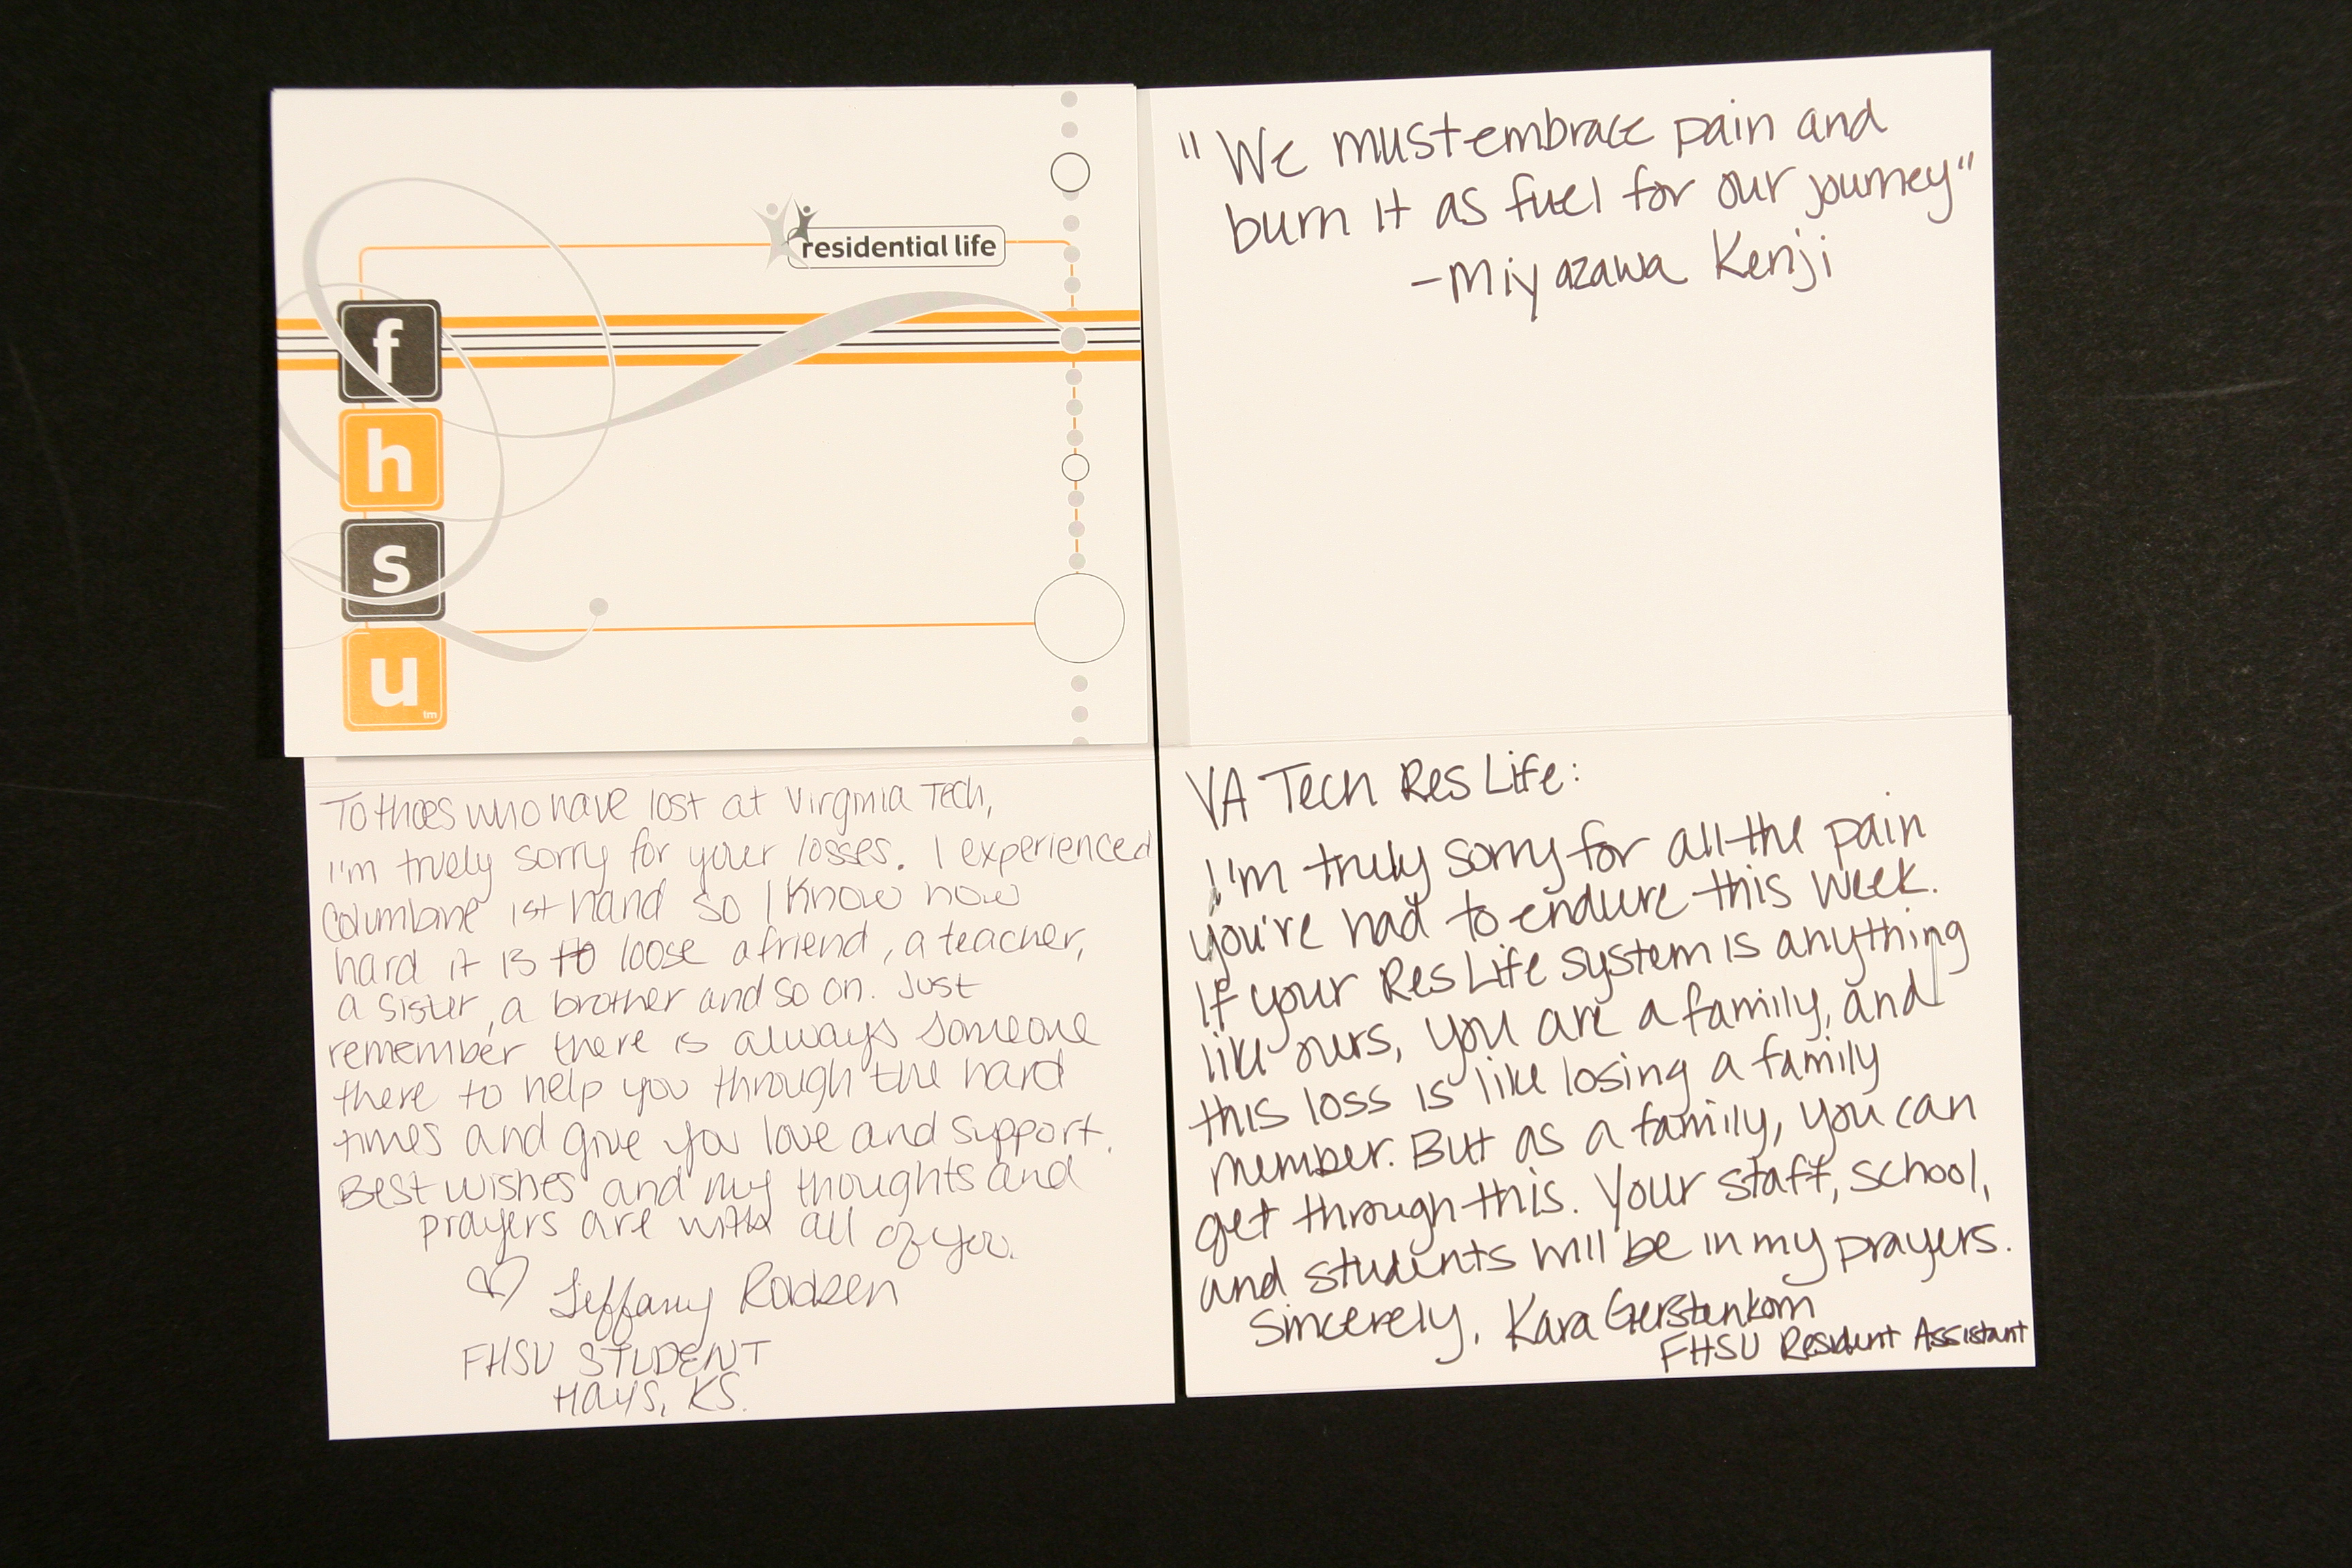 residential life
f
h
s
u
tm
To thoes who have lost at Virginia Tech,
I'm truely sorry for your losses. I experienced
Columbine 1st hand so I know how
hard it is to loose a friend, a teacher,
a sister, a brother and so on. Just
remember there is always someone
there to help you through the hard
times and give you love and support.
Best wishes and my thoughts and
prayers are with all of you.
♡ Tiffany Rodsen
FHSU STUDENT
Hays, KS.
"We must embrace pain and
burn it as fuel for our journey"
-Miyazawa Kenji
VA Tech Res Life:
I'm truly sorry for all the pain
you're had to endure this week.
If your Res Life system is anything
like ours, you are a family, and
this loss is like losing a family
member. But as a family, you can
get through this. Your staff, school,
and students will be in my prayers.
Sincerely, Kara Gerstenkorn
FHSU Resident Assistant